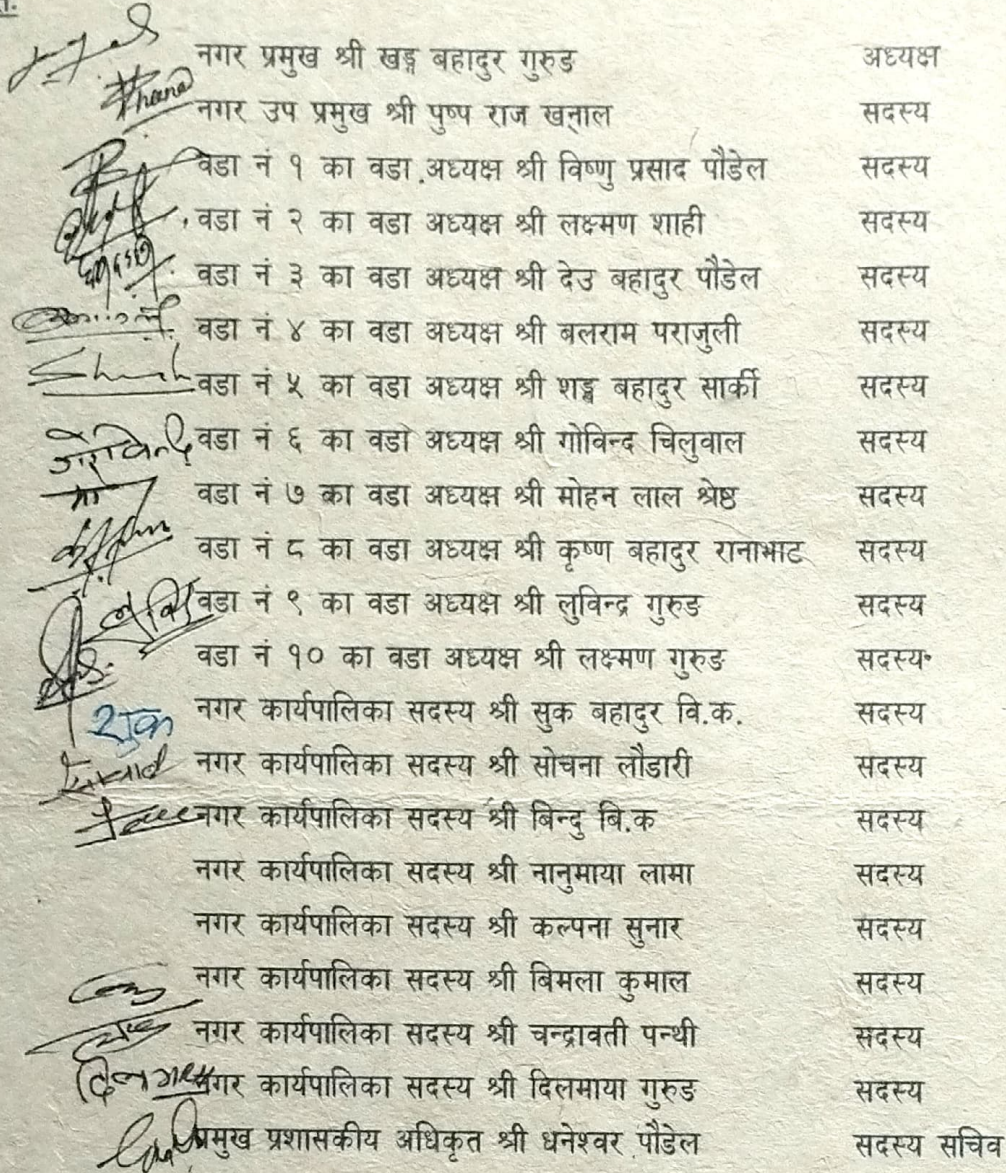 नगर प्रमुख श्री खड्ग बहादुर गुरुङ अध्यक्ष
नगर उप प्रमुख श्री पुष्प राज खनाल सदस्य
वडा नं १ का वडा अध्यक्ष श्री विष्णु प्रसाद पौडेल सदस्य
वडा नं २ का वडा अध्यक्ष श्री लक्ष्मण शाही सदस्य
वडा नं ३ का वडा अध्यक्ष श्री देउ बहादुर पौडेल सदस्य
वडा नं ४ का वडा अध्यक्ष श्री बलराम पराजुली सदस्य
वडा नं ५ का वडा अध्यक्ष श्री शङ्ख बहादुर सार्की सदस्य
गोविन्द वडा नं ६ का वडा अध्यक्ष श्री गोविन्द चिलुवाल सदस्य
वडा नं ७ का वडा अध्यक्ष श्री मोहन लाल श्रेष्ठ सदस्य
वडा नं ८ का वडा अध्यक्ष श्री कृष्ण बहादुर रानाभाट सदस्य
वडा नं ९ का वडा अध्यक्ष श्री लुविन्द्र गुरुङ सदस्य
वडा नं १० का वडा अध्यक्ष श्री लक्ष्मण गुरुङ सदस्य
सुक नगर कार्यपालिका सदस्य श्री सुक बहादुर वि.क. सदस्य
नगर कार्यपालिका सदस्य श्री सोचना लौडारी सदस्य
नगर कार्यपालिका सदस्य श्री बिन्दु बि.क सदस्य
नगर कार्यपालिका सदस्य श्री नानुमाया लामा सदस्य
नगर कार्यपालिका सदस्य श्री कल्पना सुनार सदस्य
नगर कार्यपालिका सदस्य श्री बिमला कुमाल सदस्य
नगर कार्यपालिका सदस्य श्री चन्द्रावती पन्थी सदस्य
नगर कार्यपालिका सदस्य श्री दिलमाया गुरुङ सदस्य
प्रमुख प्रशासकीय अधिकृत श्री धनेश्वर पौडेल सदस्य सचिव